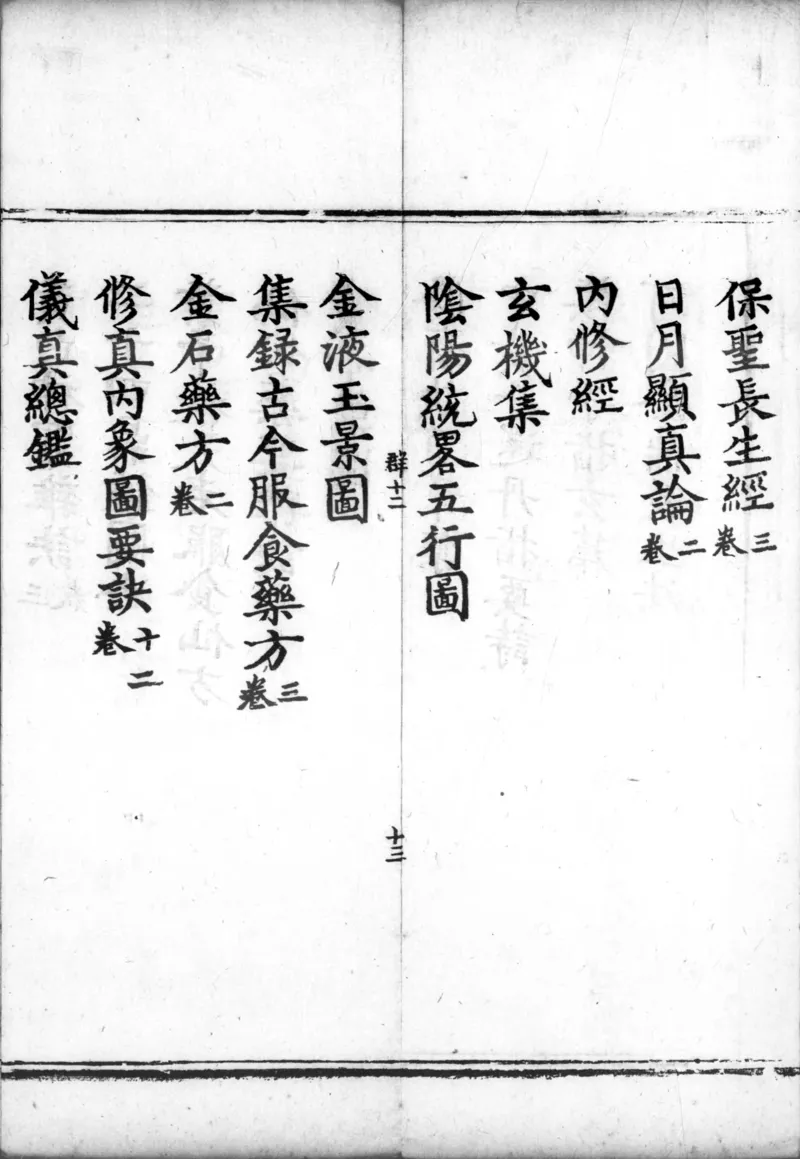 保聖長生經三卷
日月顯真論二卷
內修經
玄機集
陰陽統畧五行圖
群十二
十三
金液玉景圖
集録古今服食藥方三卷
金石藥方二卷
修真內象圖要訣十二卷
儀真總鑑